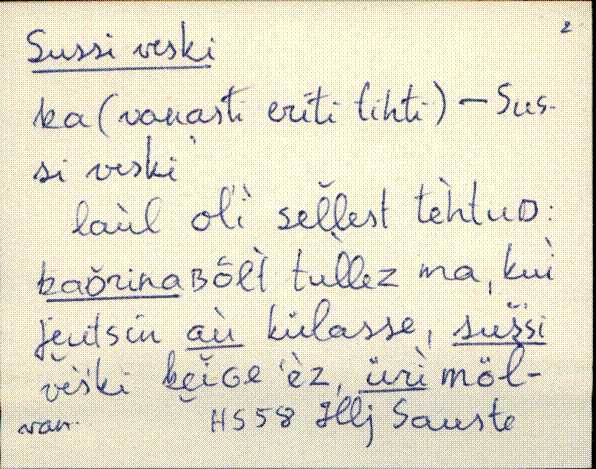 2
Sussi veski
ka (vanasti eriti tihti) – Sus-
si veski
laùl ol'ì seĺĺest tèhtuD:
kaòrinaBÕlt tuĺĺez ma, kuì
jeutsin aù külasse, sušsi
vèški keìGe èz, ürì möl-
van. HS58 Hlj Sauste